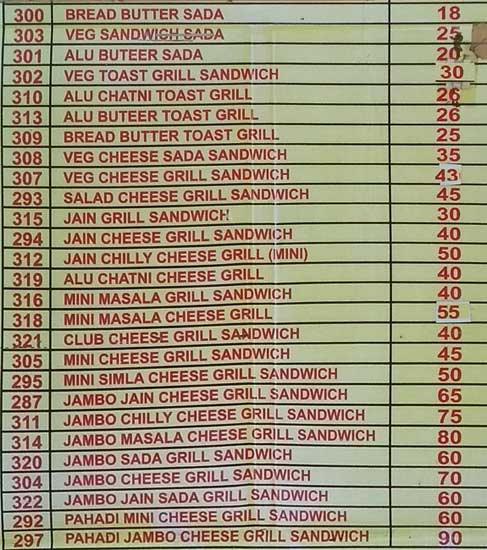 300 BREAD BUTTER SADA 18
303 VEG SANDWICH SADA 25
301 ALU BUTEER SADA 20
302 VEG TOAST GRILL SANDWICH 30
310 ALU CHATNI TOAST GRILL 26
313 ALU BUTEER TOAST GRILL 26
309 BREAD BUTTER TOAST GRILL 25
308 VEG CHEESE SADA SANDWICH 35
307 VEG CHEESE GRILL SANDWICH 43
293 SALAD CHEESE GRILL SANDWICH 45
315 JAIN GRILL SANDWICH 30
294 JAIN CHEESE GRILL SANDWICH 40
312 JAIN CHILLY CHEESE GRILL (MINI) 50
319 ALU CHATNI CHEESE GRILL 40
316 MINI MASALA GRILL SANDWICH 40
318 MINI MASALA CHEESE GRILL 55
321 CLUB CHEESE GRILL SANDWICH 40
305 MINI CHEESE GRILL SANDWICH 45
295 MINI SIMLA CHEESE GRILL SANDWICH 50
287 JAMBO JAIN CHEESE GRILL SANDWICH 65
311 JAMBO CHILLY CHEESE GRILL SANDWICH 75
314 JAMBO MASALA CHEESE GRILL SANDWICH 80
320 JAMBO SADA GRILL SANDWICH 60
304 JAMBO CHEESE GRILL SANDWICH 70
322 JAMBO JAIN SADA GRILL SANDWICH 60
292 PAHADI MINI CHEESE GRILL SANDWICH 60
297 PAHADI JAMBO CHEESE GRILL SANDWICH 90